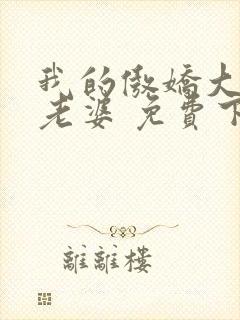 我的傲嬌大
老婆 免費下
離離樓